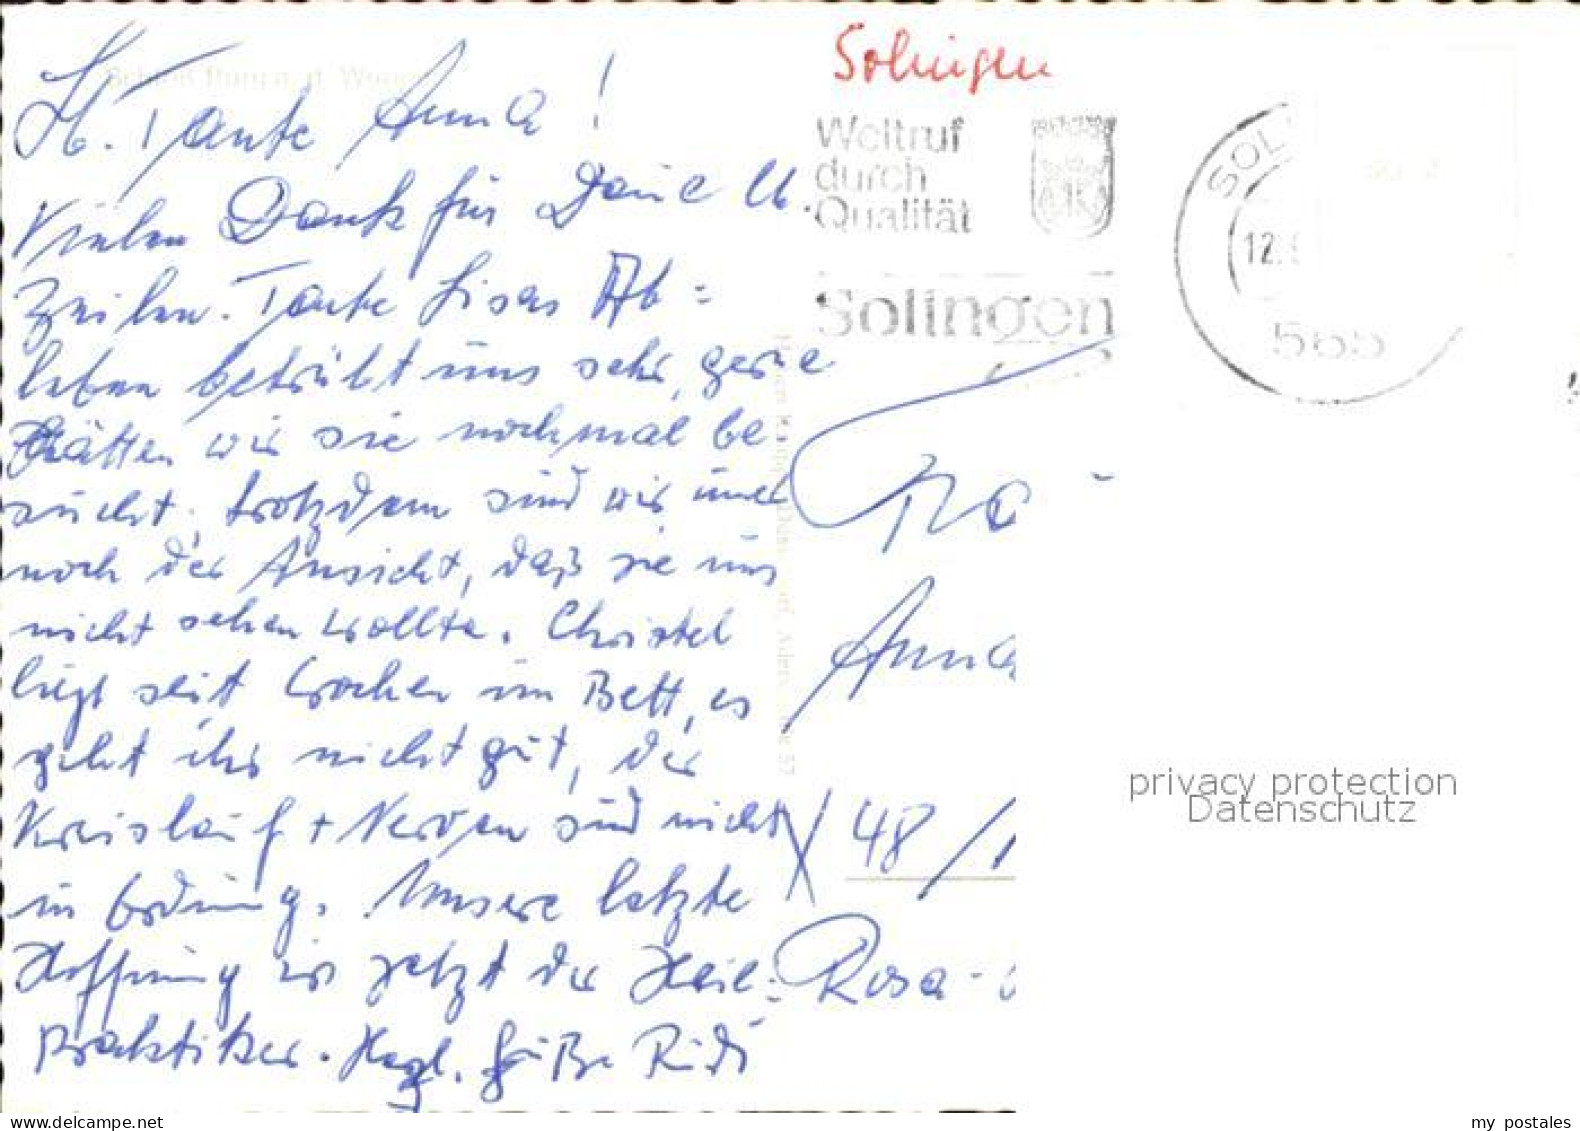 Lb. Tante Anna!
Vielen Dank für Deine lb.
Zeilen. Tante Lisas Ab=
leben betrübt uns sehr, gerne
hätten wir sie nochmal be-
sucht, trotzdem sind wir immer
noch der Ansicht, daß sie uns
nicht sehen wollte. Christel
liegt seit Wochen im Bett, es
geht ihr nicht gut, der
Kreislauf + Nerven sind nicht
in Ordnung. Unsere letzte
Hoffnung is jetzt der Heil=
Praktiker. Hzgl. Grüße Rudi
Solingen
Weltruf
durch
Qualität
Solingen
SOL
12.
565
Anna
48/1
Rosa-
privacy protection
Datenschutz
delcampe.net
my postales